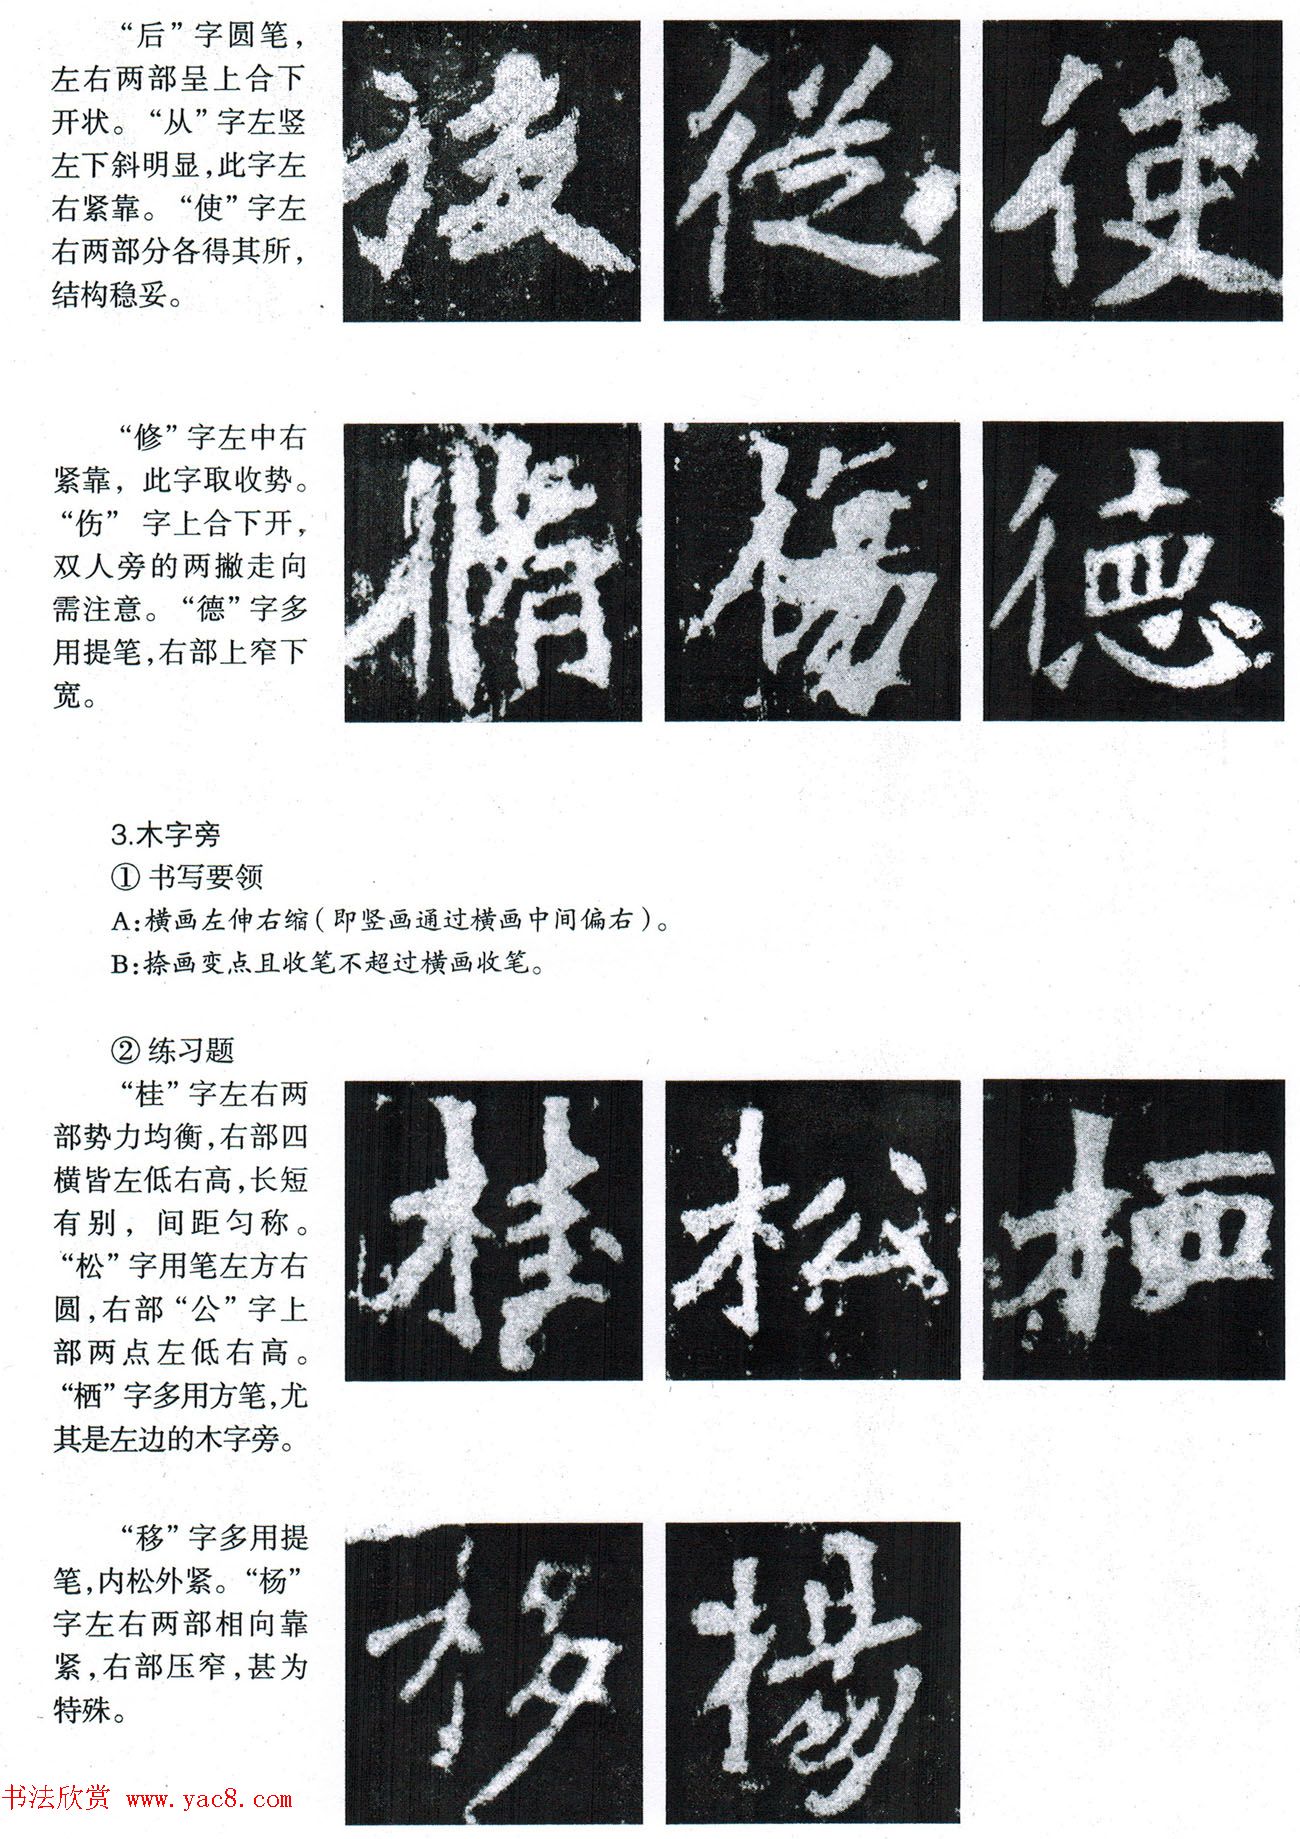 “后”字圆笔，
左右两部呈上合下
开状。“从”字左竖
左下斜明显，此字左
右紧靠。“使”字左
右两部分各得其所，
结构稳妥。
後 從 使
“修”字左中右
紧靠，此字取收势。
“伤”字上合下开，
双人旁的两撇走向
需注意。“德”字多
用提笔，右部上窄下
宽。
德
3.木字旁
① 书写要领
A:横画左伸右缩（即竖画通过横画中间偏右）。
B:捺画变点且收笔不超过横画收笔。
② 练习题
“桂”字左右两
部势力均衡，右部四
横皆左低右高，长短
有别，间距匀称。
“松”字用笔左方右
圆，右部“公”字上
部两点左低右高。
“栖”字多用方笔，尤
其是左边的木字旁。
桂 松 栖
“移”字多用提
笔，内松外紧。“杨”
字左右两部相向靠
紧，右部压窄，甚为
特殊。
移 楊
书法欣赏 www.yac8.com